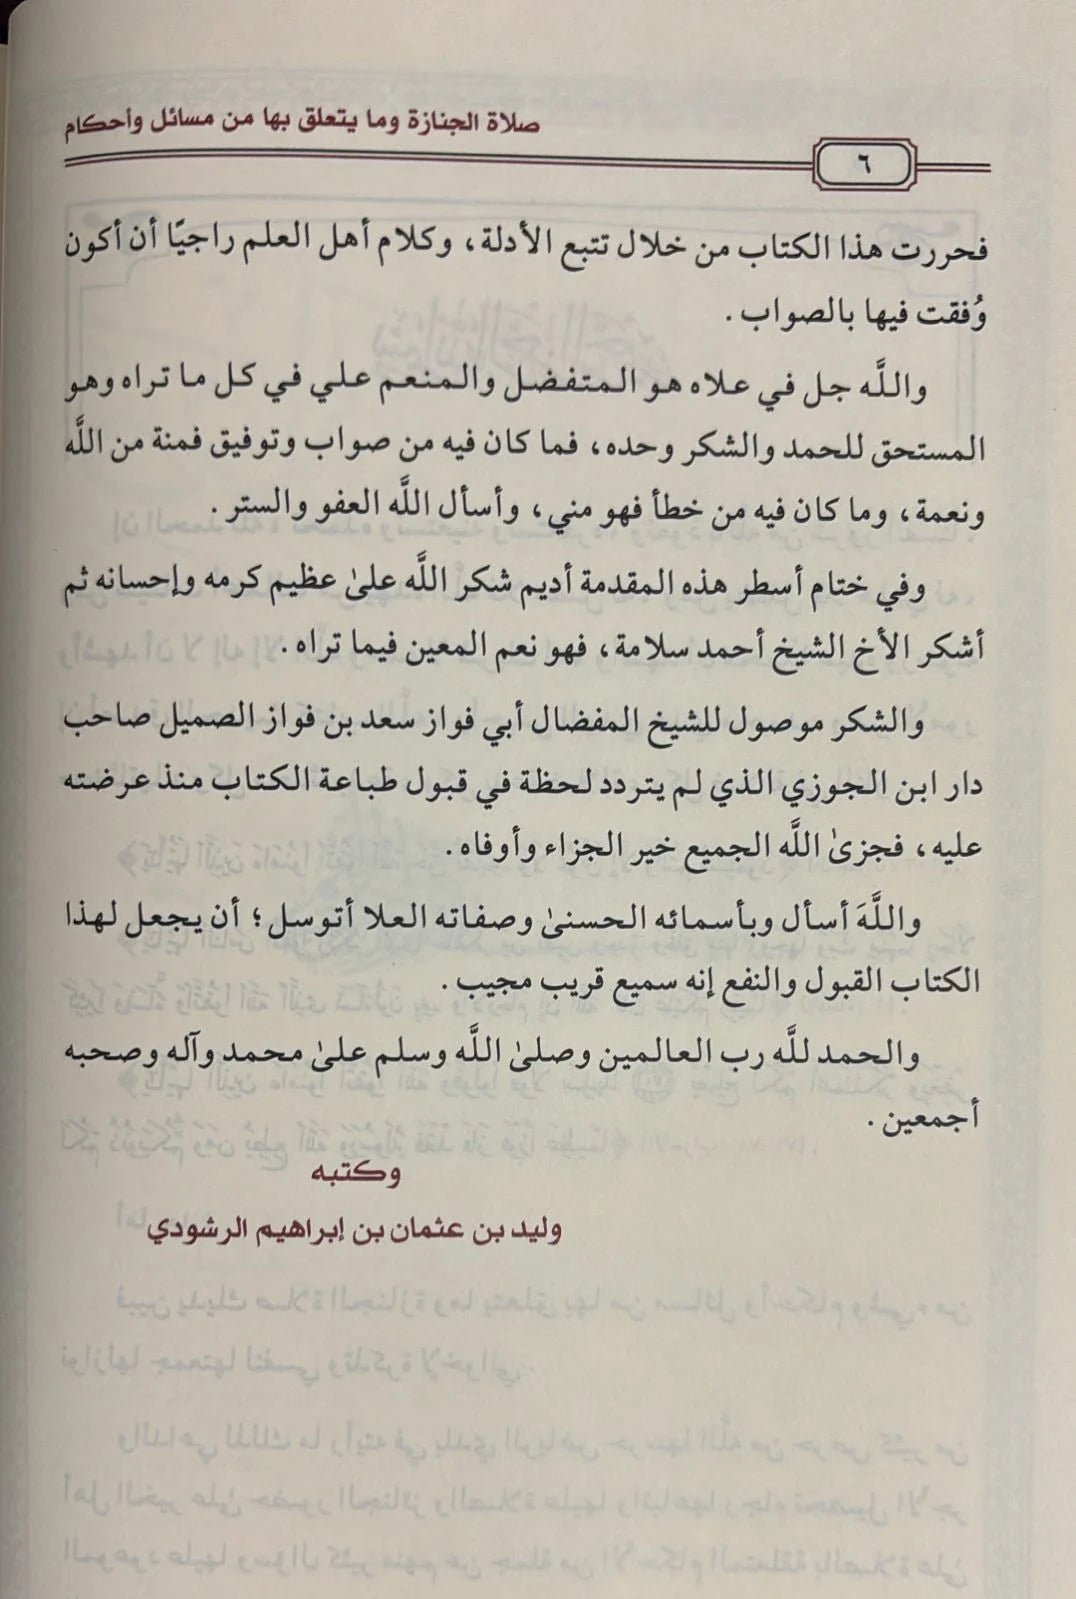 صلاة الجنازة وما يتعلق بها من مسائل وأحكام
٦
فحررت هذا الكتاب من خلال تتبع الأدلة، وكلام أهل العلم راجيًا أن أكون
وُفقت فيها بالصواب.
واللَّه جل في علاه هو المتفضل والمنعم علي في كل ما تراه وهو
المستحق للحمد والشكر وحده، فما كان فيه من صواب وتوفيق فمنة من اللَّه
ونعمة، وما كان فيه من خطأ فهو مني، وأسأل اللَّه العفو والستر.
وفي ختام أسطر هذه المقدمة أديم شكر اللَّه علىٰ عظيم كرمه وإحسانه ثم
أشكر الأخ الشيخ أحمد سلامة، فهو نعم المعين فيما تراه.
والشكر موصول للشيخ المفضال أبي فواز سعد بن فواز الصميل صاحب
دار ابن الجوزي الذي لم يتردد لحظة في قبول طباعة الكتاب منذ عرضته
عليه، فجزىٰ اللَّه الجميع خير الجزاء وأوفاه.
واللَّهَ أسأل وبأسمائه الحسنىٰ وصفاته العلا أتوسل؛ أن يجعل لهذا
الكتاب القبول والنفع إنه سميع قريب مجيب.
والحمد للَّه رب العالمين وصلىٰ اللَّه وسلم علىٰ محمد وآله وصحبه
أجمعين.
وكتبه
وليد بن عثمان بن إبراهيم الرشودي